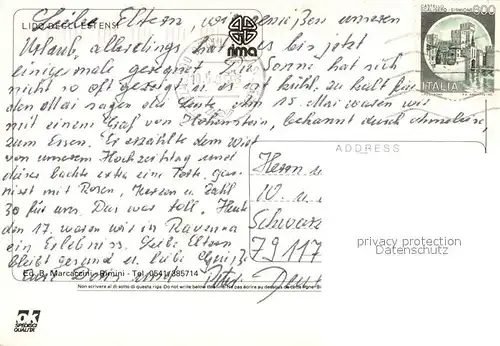 LIDO DEGLI ESTENSI
Liebe Eltern, wir genießen unseren
Urlaub, allerdings hat es bis jetzt
einigemale geregnet. Die Sonne hat sich
nicht so oft gezeigt u. es ist kühl. zu kalt für
den Mai sagen die Leute. Am 15. Mai waren wir
mit einem Graf von Hohenstein, bekannt durch
zum Essen. Er erzählte dem Wirt
von unserem Hochzeitstag und
dieser backte extra eine Torte, gar-
niert mit Rosen, Herzen u. Zahl
30 für uns. Das war toll. Heute
den 17. waren wir in Ravenna
ein Erlebnis. Liebe Eltern
bleibt gesund u. liebe Grüße
Eure und Peter
rima
CASTELLO
SIRMIONE
800
ITALIA
ADDRESS
Herrn u
W. u
Schwarz
79117
Deut
privacy protection
Datenschutz
Ed. B. Marcaccini - Rimini - Tel. 0541/385714
Non scrivere al di sotto di questa riga Do not write below this Ne pas écrire au dessous de cette ligne
ok
SPEDISCI
QUALITA'